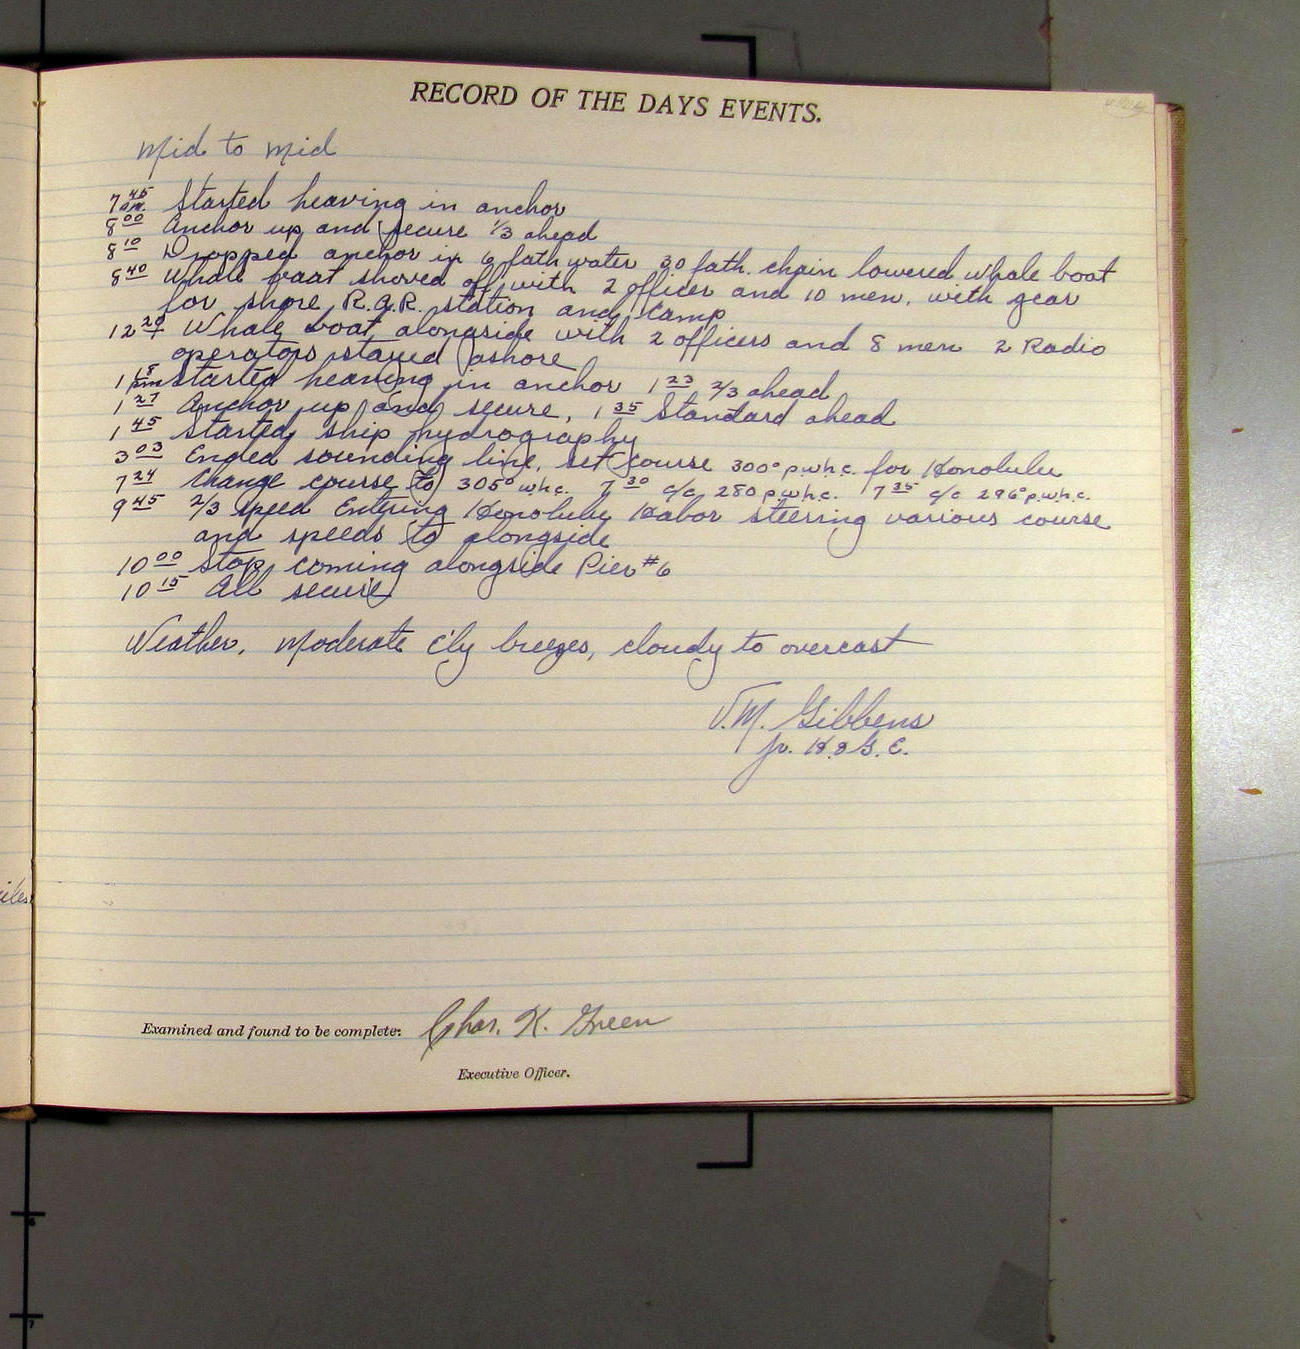 RECORD OF THE DAYS EVENTS.
Mid to Mid
7 45 am. Started heaving in anchor
8 00 Anchor up and secure 1/3 ahead
8 10 Dropped anchor in 6 fath water 30 fath. chain lowered whale boat
8 40 Whale boat shoved off with 2 officer and 10 men, with gear
for shore R.A.R. station and camp
12 20 Whale boat alongside with 2 officers and 8 men 2 Radio
operators stayed ashore
1 18 pm Started heaving in anchor 1 23 2/3 ahead
1 27 Anchor up and secure, 1 35 Standard ahead
1 45 Started ship hydrography
3 03 Ended sounding line, set course 300° p.w.h.c. for Honolulu
7 24 Change course to 305° w.h.c. 7 30 c/c 280 p.w.h.c. 7 35 c/c 296° p.w.h.c.
9 45 2/3 speed Entering Honolulu Habor steering various course
and speeds to alongside
10 00 Stop, coming alongside Pier #6
10 15 All secure
Weather, Moderate E'ly breezes, cloudy to overcast
J.M. Gibbens
Jr. H.& G.E.
Examined and found to be complete: Chas. K. Green
Executive Officer.